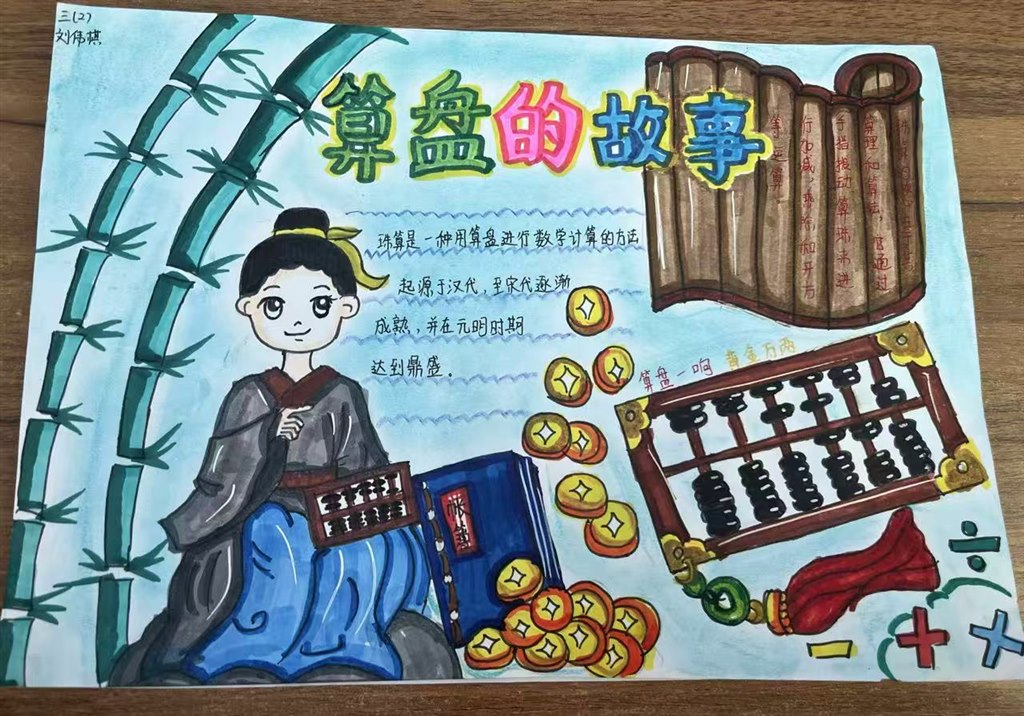 三(2)
刘伟棋
算盘的故事
珠算是一种用算盘进行数学计算的方法
起源于汉代，至宋代逐渐
成熟，并在元明时期
达到鼎盛。
算理和算法，通过
手指拨动算珠来进
行加减、乘除和开方
等运算。
算盘一响 黄金万两
÷
－ + ×